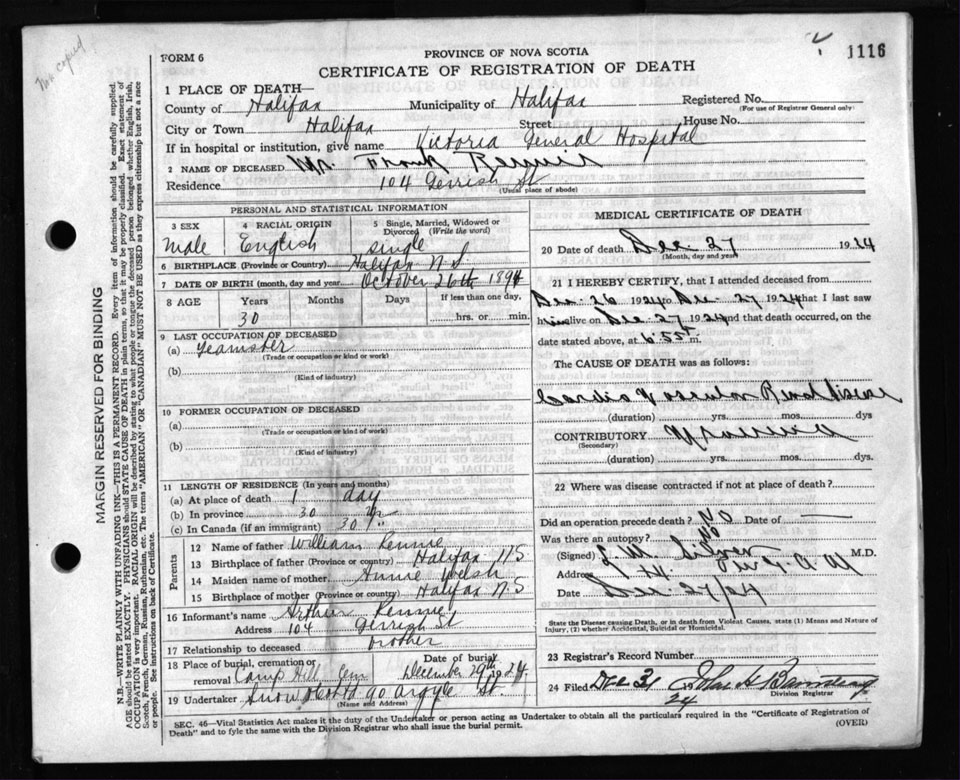 Not copied
1116
FORM 6
PROVINCE OF NOVA SCOTIA
CERTIFICATE OF REGISTRATION OF DEATH
1 PLACE OF DEATH—
County of Halifax Municipality of Halifax Registered No.
(For use of Registrar General only)
City or Town Halifax Street House No.
If in hospital or institution, give name Victoria General Hospital
2 NAME OF DECEASED Mr. Frank
Residence 104 Gerrish St
(Usual place of abode)
PERSONAL AND STATISTICAL INFORMATION
3 SEX 4 RACIAL ORIGIN 5 Single, Married, Widowed or Divorced (Write the word)
Male English single
6 BIRTHPLACE (Province or Country) Halifax N.S.
7 DATE OF BIRTH (month, day and year) October 26th 1894
8 AGE Years Months Days If less than one day,
30 hrs. or min.
9 LAST OCCUPATION OF DECEASED
(a) Teamster
(Trade or occupation or kind or work)
(b)
(Kind of industry)
10 FORMER OCCUPATION OF DECEASED
(a)
(Trade or occupation or kind or work)
(b)
(Kind of industry)
11 LENGTH OF RESIDENCE (In years and months)
(a) At place of death 1 day
(b) In province 30
(c) In Canada (if an immigrant) 30 "
Parents
12 Name of father William Rennie
13 Birthplace of father (Province or country) Halifax NS
14 Maiden name of mother Annie Welsh
15 Birthplace of mother (Province or country) Halifax NS
16 Informant's name Arthur Rennie
Address 104 Gerrish St
17 Relationship to deceased brother
18 Place of burial, cremation or removal Camp Hill Cem Date of burial December 29th 1924
19 Undertaker Snow & Co Ltd 90 Argyle St.
(Name and Address)
MEDICAL CERTIFICATE OF DEATH
20 Date of death Dec. 27 1924
(Month, day and year)
21 I HEREBY CERTIFY, that I attended deceased from
Dec. 26 1924 to Dec. 27 1924 that I last saw
him alive on Dec. 27 1924 and that death occurred, on
date stated above, at 6.55 m.
The CAUSE OF DEATH was as follows:
Cardio Vascular Renal disease
(duration) yrs. mos. dys
CONTRIBUTORY Uraemia
(Secondary)
(duration) yrs. mos. dys.
22 Where was disease contracted if not at place of death?
Did an operation precede death? No Date of —
Was there an autopsy? No
(Signed) M.D.
Address
Date Dec. 27/24
State the Disease causing Death, or in death from Violent Causes, state (1) Means and Nature of Injury, (2) whether Accidental, Suicidal or Homicidal.
23 Registrar's Record Number
24 Filed Dec 31 24 John H
Division Registrar
SEC. 46—Vital Statistics Act makes it the duty of the Undertaker or person acting as Undertaker to obtain all the particulars required in the "Certificate of Registration of
Death" and to fyle the same with the Division Registrar who shall issue the burial permit. (OVER)
MARGIN RESERVED FOR BINDING
N.B.—WRITE PLAINLY WITH UNFADING INK—THIS IS A PERMANENT RECORD. Every item of information should be carefully supplied.
AGE should be stated EXACTLY. PHYSICIANS should STATE CAUSE OF DEATH in plain terms, so that it may be properly classified. Exact statement of
OCCUPATION is very important. RACIAL ORIGIN will be described by stating to what people or tongue the deceased person belonged whether English, Irish,
Scotch, French, German, Russian, Ruthenian, etc. The terms "AMERICAN" or "CANADIAN" MUST NOT BE USED as they express citizenship but not a race
or people. See instructions on back of Certificate.